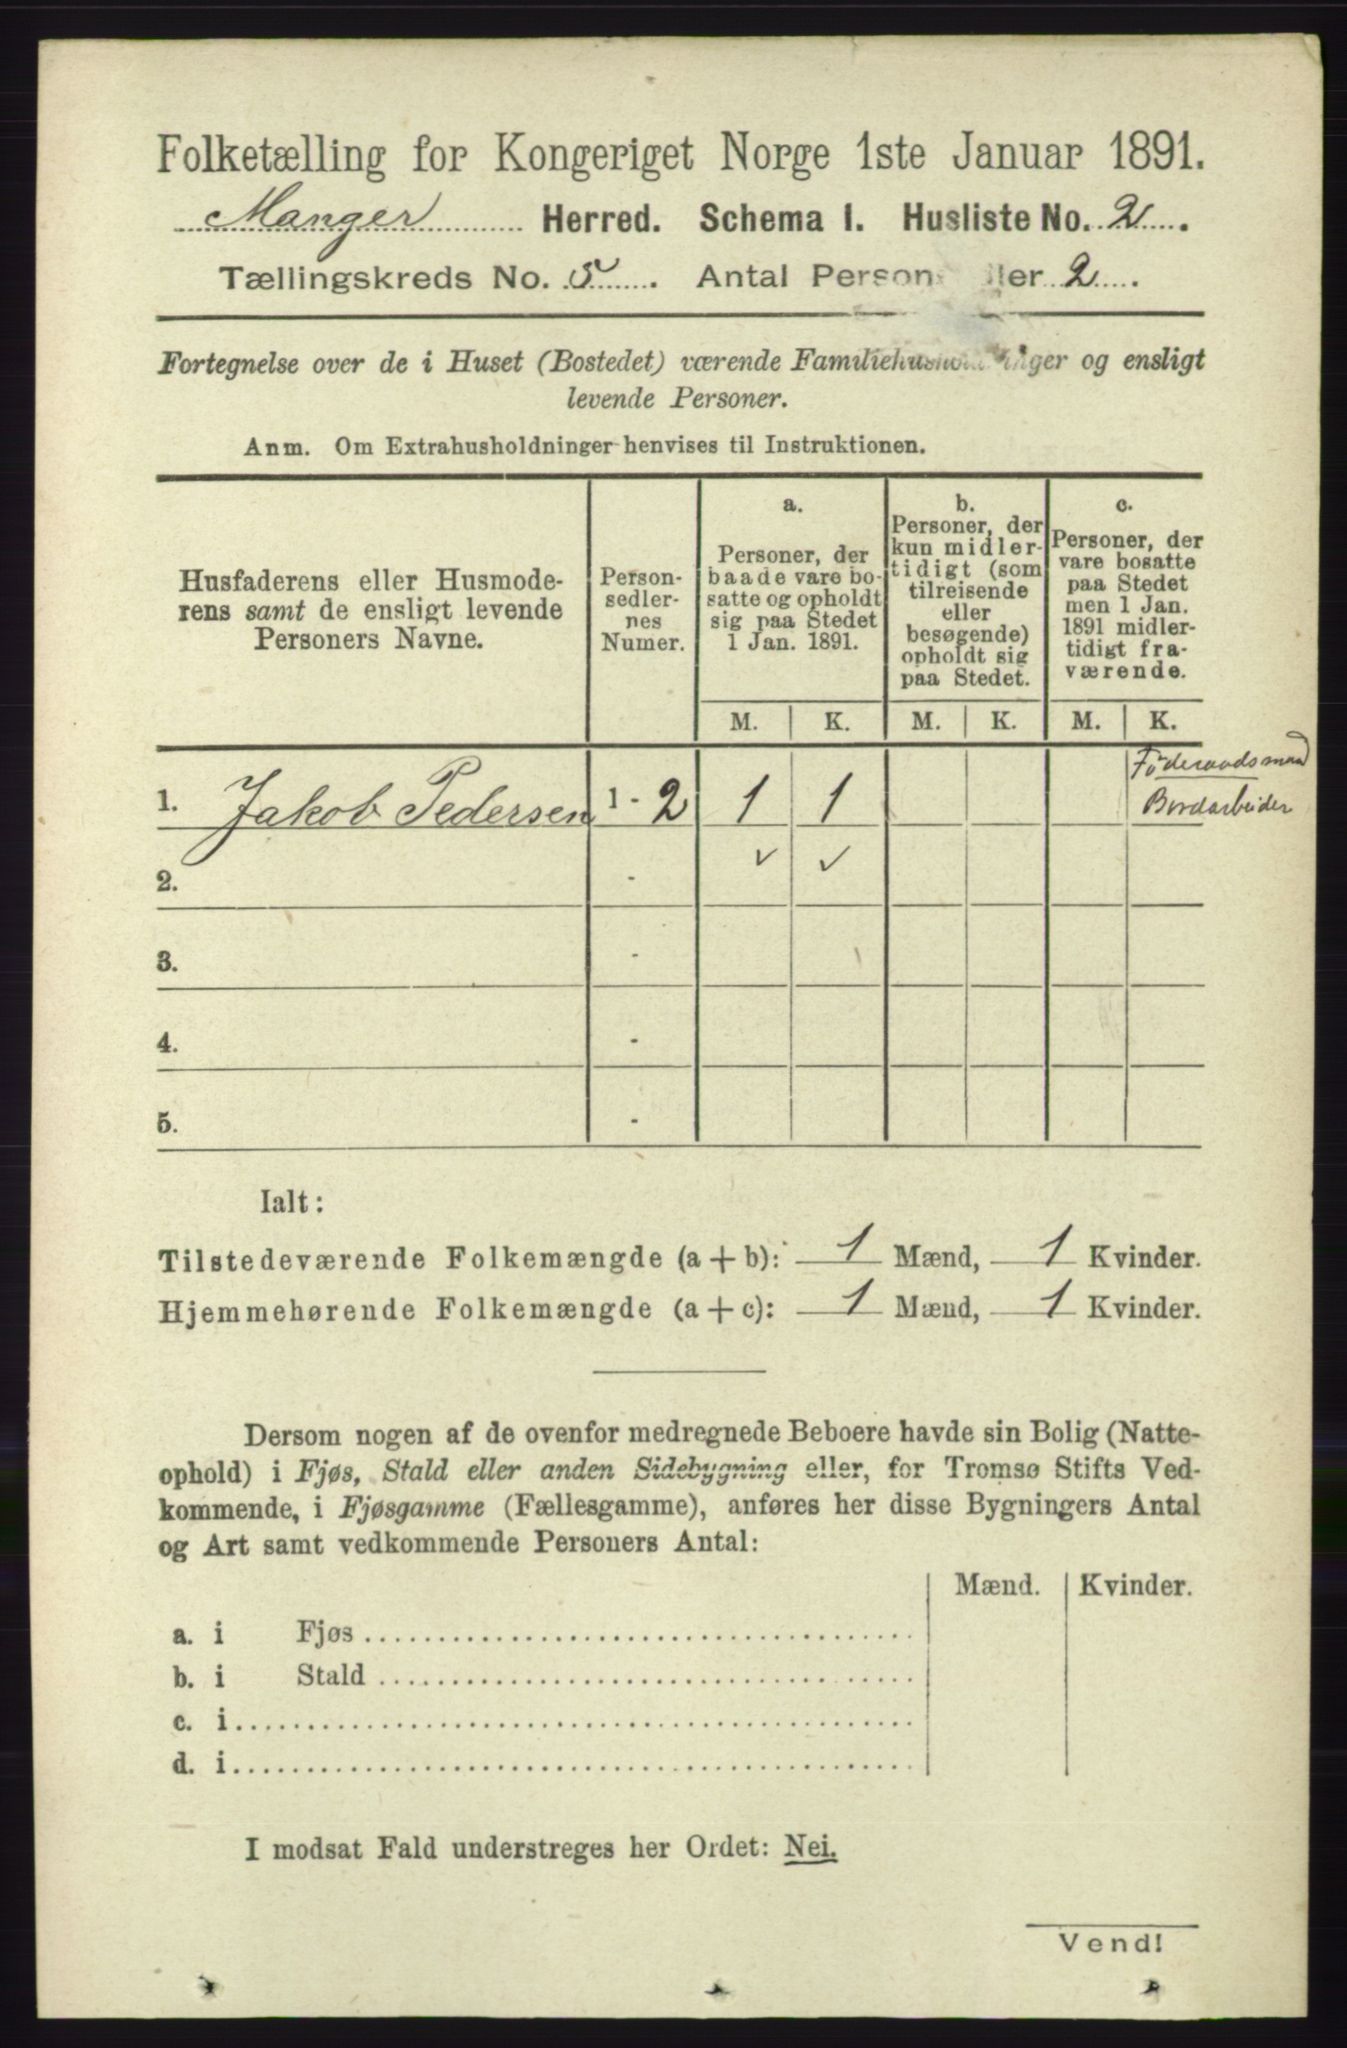 Folketælling for Kongeriget Norge 1ste Januar 1891.
Manger Herred. Schema I. Husliste No. 2.
Tællingskreds No. 5. Antal 2.
Fortegnelse over de i Huset (Bostedet) værende og ensligt
levende Personer.
Anm. Om Extrahusholdninger henvises til Instruktionen.
Husfaderens eller Husmode-
rens samt de ensligt levende
Personers Navne.
Person-
sedler-
nes
Numer.
a.
Personer, der
baade vare bo-
satte og opholdt
sig paa Stedet
1 Jan. 1891.
b.
Personer, der
kun midler-
tidigt (som
tilreisende
eller
besøgende)
opholdt sig
paa Stedet.
c.
Personer, der
vare bosatte
paa Stedet
men 1 Jan.
1891 midler-
tidigt fra-
værende.
M. K. M. K. M. K.
Föderaadsmand
1. Jakob Pedersen 1 - 2 1 1
✓ ✓
2. -
3. -
4. -
5. -
Ialt:
Tilstedeværende Folkemængde (a + b): 1 Mænd, 1 Kvinder.
Hjemmehørende Folkemængde (a + c): 1 Mænd, 1 Kvinder.
Dersom nogen af de ovenfor medregnede Beboere havde sin Bolig (Natte-
ophold) i Fjøs, Stald eller anden Sidebygning eller, for Tromsø Stifts Ved-
kommende, i Fjøsgamme (Fællesgamme), anføres her disse Bygningers Antal
og Art samt vedkommende Personers Antal:
Mænd. Kvinder.
a. i Fjøs
b. i Stald
c. i
d. i
I modsat Fald understreges her Ordet: Nei.
Vend!